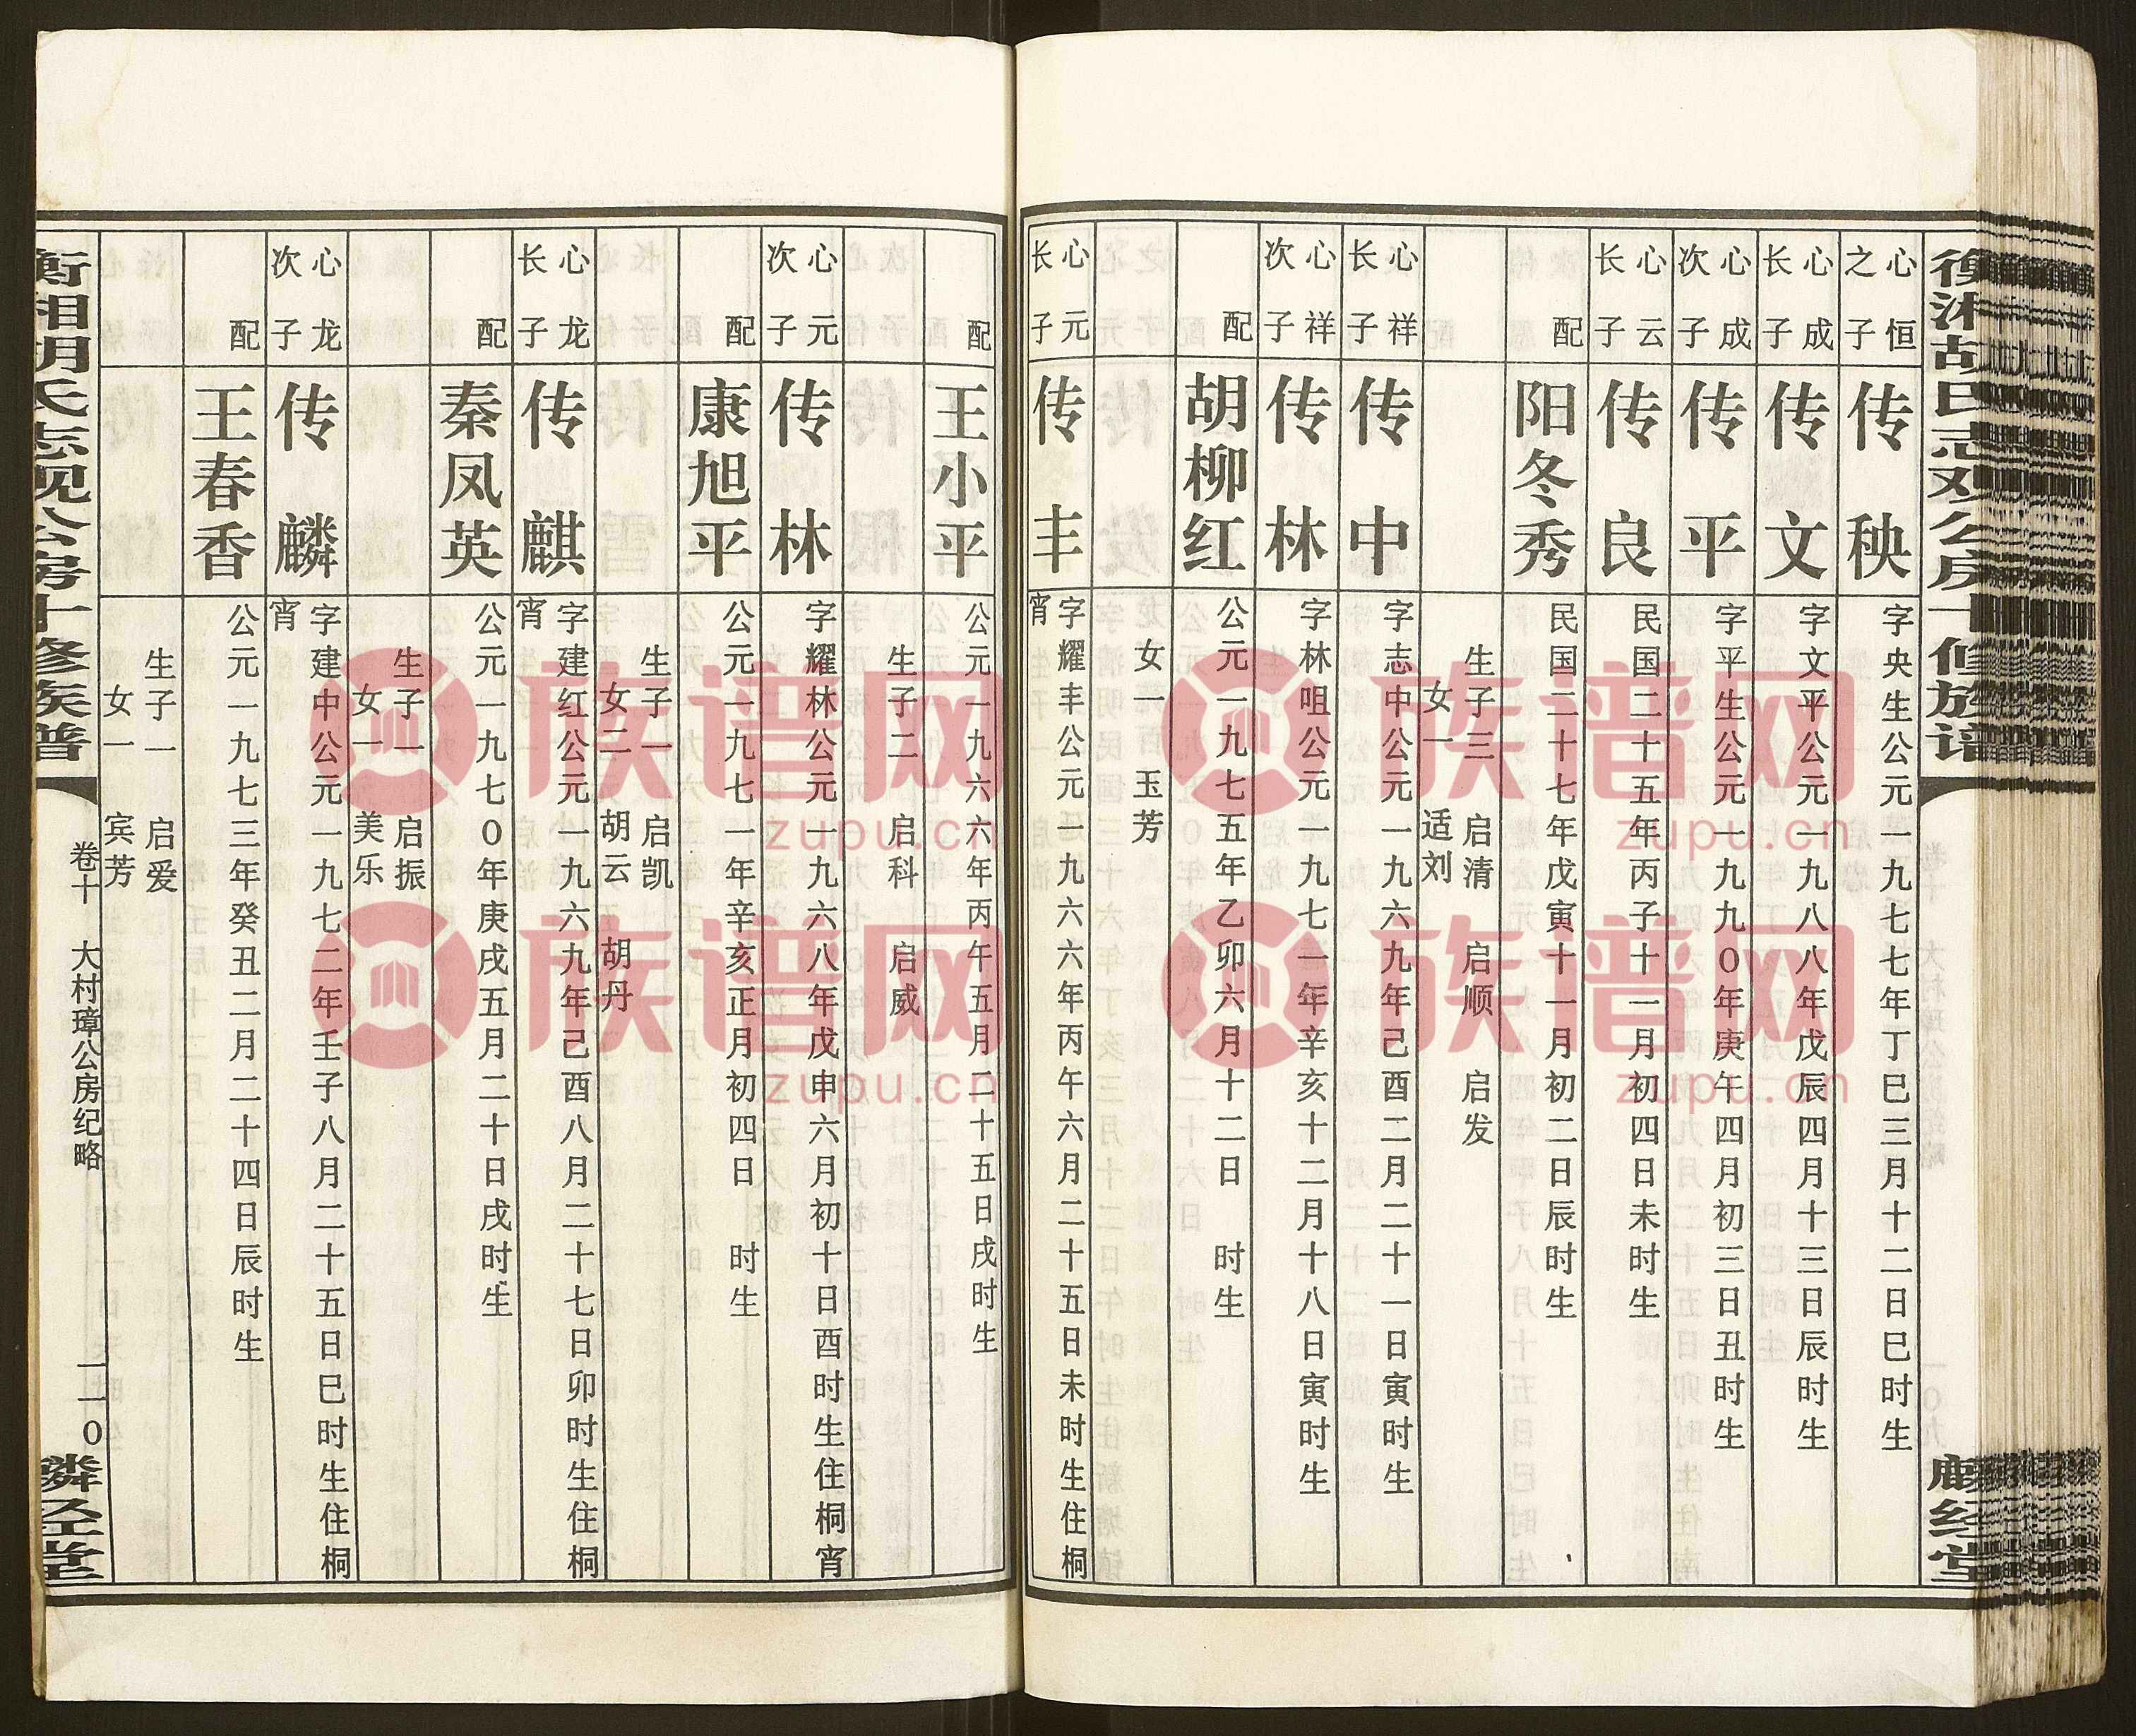 心恒之子
传秧
字央生公元一九七七年丁巳三月十二日巳时生
心成长子
传文
字文平公元一九八八年戊辰四月十三日辰时生
心成次子
传平
字平生公元一九九0年庚午四月初三日丑时生
心云长子
传良
民国二十五年丙子十一月初四日未时生
配
阳冬秀
民国二十七年戊寅十一月初二日辰时生
生子三 启清 启顺 启发
女一 适刘
心祥长子
传中
字志中公元一九六九年己酉二月二十一日寅时生
心祥次子
传林
字林咀公元一九七一年辛亥十二月十八日寅时生
配
胡柳红
公元一九七五年乙卯六月十二日 时生
女一 玉芳
心元长子
传丰
字耀丰公元一九六六年丙午六月二十五日未时生住桐
宵
配
王小平
公元一九六六年丙午五月二十五日戌时生
生子二 启科 启威
心元次子
传林
字耀林公元一九六八年戊申六月初十日酉时生住桐宵
配
康旭平
公元一九七一年辛亥正月初四日 时生
生子一 启凯
女二 胡云 胡丹
心龙长子
传麒
字建红公元一九六九年己酉八月二十七日卯时生住桐
宵
配
秦凤英
公元一九七0年庚戌五月二十日戌时生
生子一 启振
女一 美乐
心龙次子
传麟
字建中公元一九七二年壬子八月二十五日巳时生住桐
宵
配
王春香
公元一九七三年癸丑二月二十四日辰时生
生子一 启爱
女一 宾芳
卷十 大村璋公房纪略 一一0
衡湘胡氏志观公房十修族谱
麟经堂
族谱网
zupu.cn
族谱网
zupu.cn
族谱网
zupu.cn
族谱网
zupu.cn